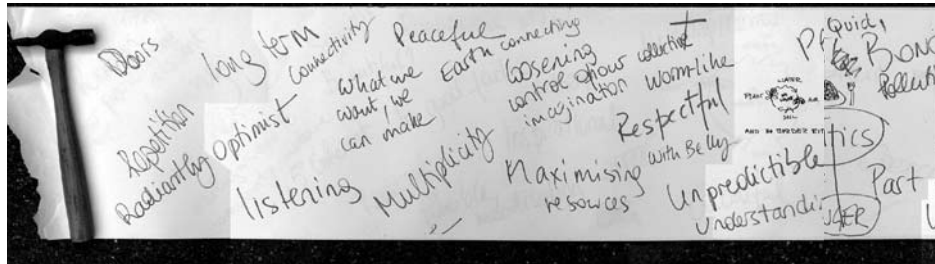 Doors
Repetition
Radiantly Optimist
long term
Connectivity
listening
What we
want, we
can make
Peaceful
Earth connecting
Multiplicity
loosening
control of our collective
imagination
Worm-like
Respectful
with Belly
Maximising
resources
Unpredictible
Understandin
WATER
PLANTS
AIR
SOIL
Quid,
Bond
Pollutio
tics
Part